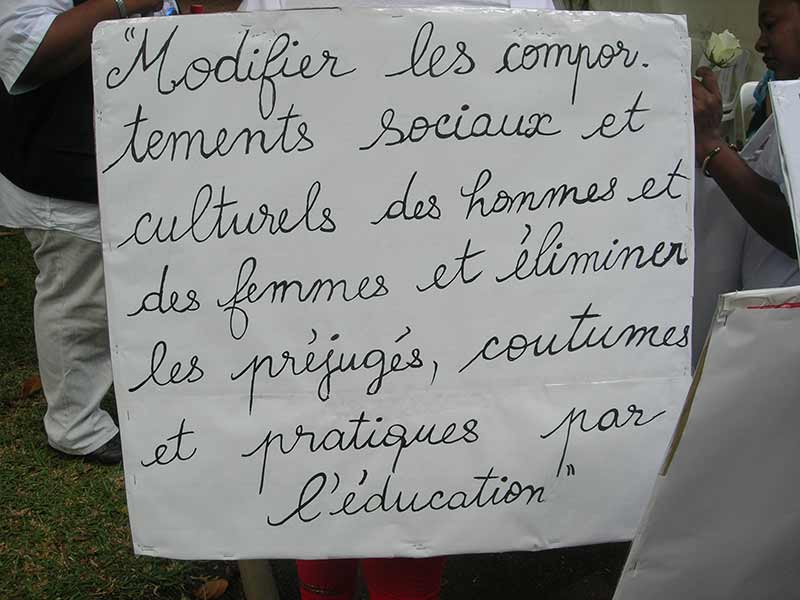 "Modifier les compor-
tements sociaux et
culturels des hommes et
des femmes et éliminer
les préjugés, coutumes
et pratiques par
l'éducation"